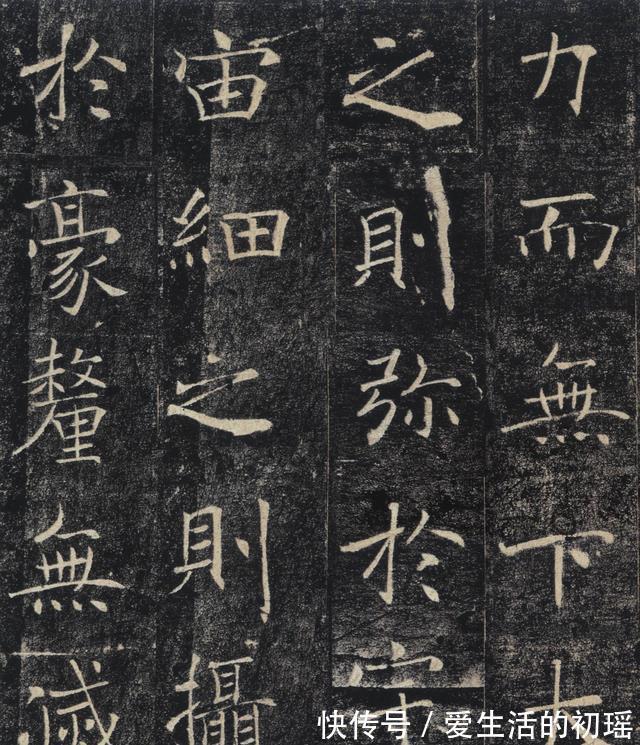 力而無下大
之則弥於宇
宙細之則攝
於豪釐無滅
快传号 / 爱生活的初瑶